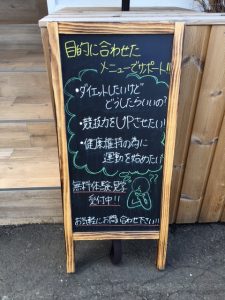 目的に合わせた
メニューでサポート!!
・ダイエットしたいけど
どうしたらいいの?
・競技力をUPさせたい!
・健康維持の為に
運動を始めたい
無料体験・見学
受付中!!
お気軽にお問い合わせ下さい!!